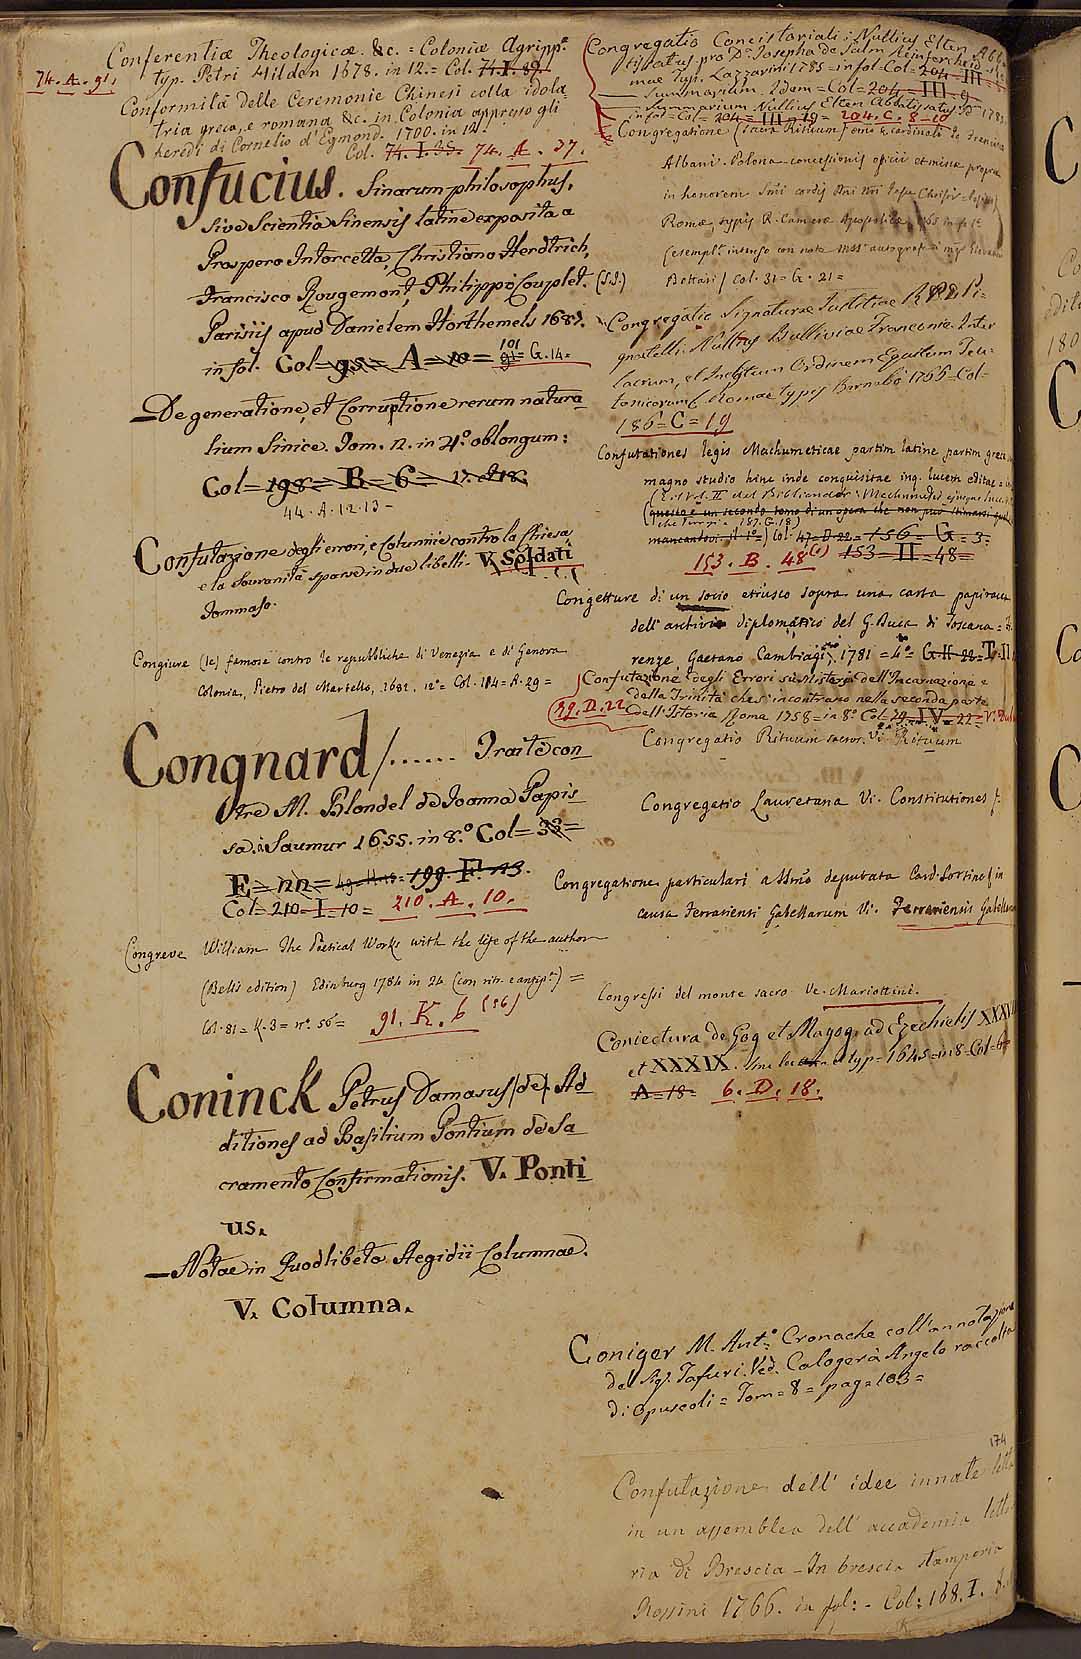 Conferentiæ Theologicæ. &c. = Coloniæ Agripp.æ
typ. Petri Hilden 1678. in 12. = Col. 74.I.89.
74. A. 91.
Conformità delle Ceremonie Chinesi colla idola-
tria greca, e romana &c. in Colonia appresso gli
heredi di Cornelio d'Egmond. 1700. in 12.
Col. 74.I.35. 74. A. 37.
Confucius. Sinarum philosophus,
sive Scientia Sinensis latine exposita a
Prospero Intorcetta, Christiano Herdtrich,
Francisco Rougemont, Philippo Couplet. (S.S.)
Parisiis apud Danielem Horthemels 1687.
in fol. Col= 98= A= 10= 91 101 = G. 14=
—De generatione, et Corruptione rerum natura-
lium Sinice. Tom. 12. in 4.º oblongum:
Col= 198= B= 6= 17. 18.
44. A. 12. 13-
Confutazione degli errori, e Calunnie contro la Chiesa
e la Sovranità sparse in due libelli. V. Soldati
Tommaso.
Congiure (le) famose contro le repubbliche di Venezia e di Genova
Colonia, Pietro del Martello, 1681. 12º= Col. 114= A. 29=
Congnard /...... Traité con
tre M. Blondel de Joanna Papis
sa. à Saumur 1655. in 8.º Col= 33=
E= nn= 199. F. 13.
Col= 210= I= 10= 210. A. 10.
Congreve William The Poetical Works with the life of the author
(Bell's edition) Edinburg 1784 in 24 (con ritr. e antip.ª) =
Col. 81= K. 3= nº 56= 91. K. 6 (56)
Coninck Petrus Damasus (de) Ad
ditiones ad Basilium Pontium de Sa
cramento Confirmationis. V. Ponti
us.
—Notae in Quodlibeta Aegidii Columnae.
V. Columna.
Congregatio Concistoriali: Nullius Elten Abba
tissatus pro D.ª Josepha de Salm Reinfercheid
mae Typ. Lazzarini 1785= in fol= Col= 204= III=
— Summarium. Idem= Col= 204= III= 9
— Summarium Nullius Elten Abbatissatus 178
in fol= Col= 204= III= 10= 204. C. 8-10
Congregatione (sacra) Rituum Emo E. Cardinali Io. Francisco
Albani. Polona. concessionis officii et missae propriae
in honorem Smi cordis Dni Nri Jesu Christi
Romae, typis R. Camerae Apostolicae, 1765 in f.º
(esempl.e intonso con note mss. autografe di mgr.
Bottari) Col. 31= G. 21=
Congregatio Signaturae Justitiae R.P.D. Pi-
gnatelli. Nullius Balliviae Franconiae. Inter
lacrum, et Inclytum Ordinem Equitum Teu-
tonicorum &. Romae typis Bernabò 1766= Col=
186= C= 19
Confutationes legis Machumeticae partim latine partim graece
magno studio hinc inde conquisitae ing. lucem editae =
(È il vol. II del Bibliander: Machumetis, ejusque
(questo è un secondo tomo di un opera che non può stimarsi
che Turrpi. 187. G. 18)
mancandovi il 1º) Col. 47= D. 22= 156= G= 3=
153. B. 48 153= II= 48=
Congetture di un socio etrusco sopra una carta papiracea
dell' archivio diplomatico del G. Duca di Toscana =
renze, Gaetano Cambiagi, 1781= 4º=
Confutazione degli Errori su Misterj dell' Incarnazione e
della Trinità che s'incontrano nella seconda parte
39. D. 22 dell' Istoria Roma 1758= in 8º Col= 39= IV= 22=
Congregatio Rituum sacror. Vi. Rituum
Congregatio Lauretana Vi. Constitutiones
Congregatione particulari a Ssmo deputata Card. Sortino in
causa Ferrariensi Gabellarum Vi. Ferrariensis Gabellarum
Congressi del monte sacro Ve. Mariottini.
Coniectura de Gog et Magog. ad Ezechielis XXXVIII
et XXXIX. Sine loco et typ= 1645= in 8= Col= 6=
A= 18= 6. D. 18.
Coniger M. Ant.º Cronache coll' annotazioni
del Sig. Tafuri. Ved. Calogerà Angelo raccolta
di Opuscoli= Tom= 8= pag= 103=
174
Confutazione dell' idee innate letta
in un assemblea dell' accademia lette-
raria di Brescia - In brescia stamperia
Rossini 1766. in fol:- Col: 168. I.